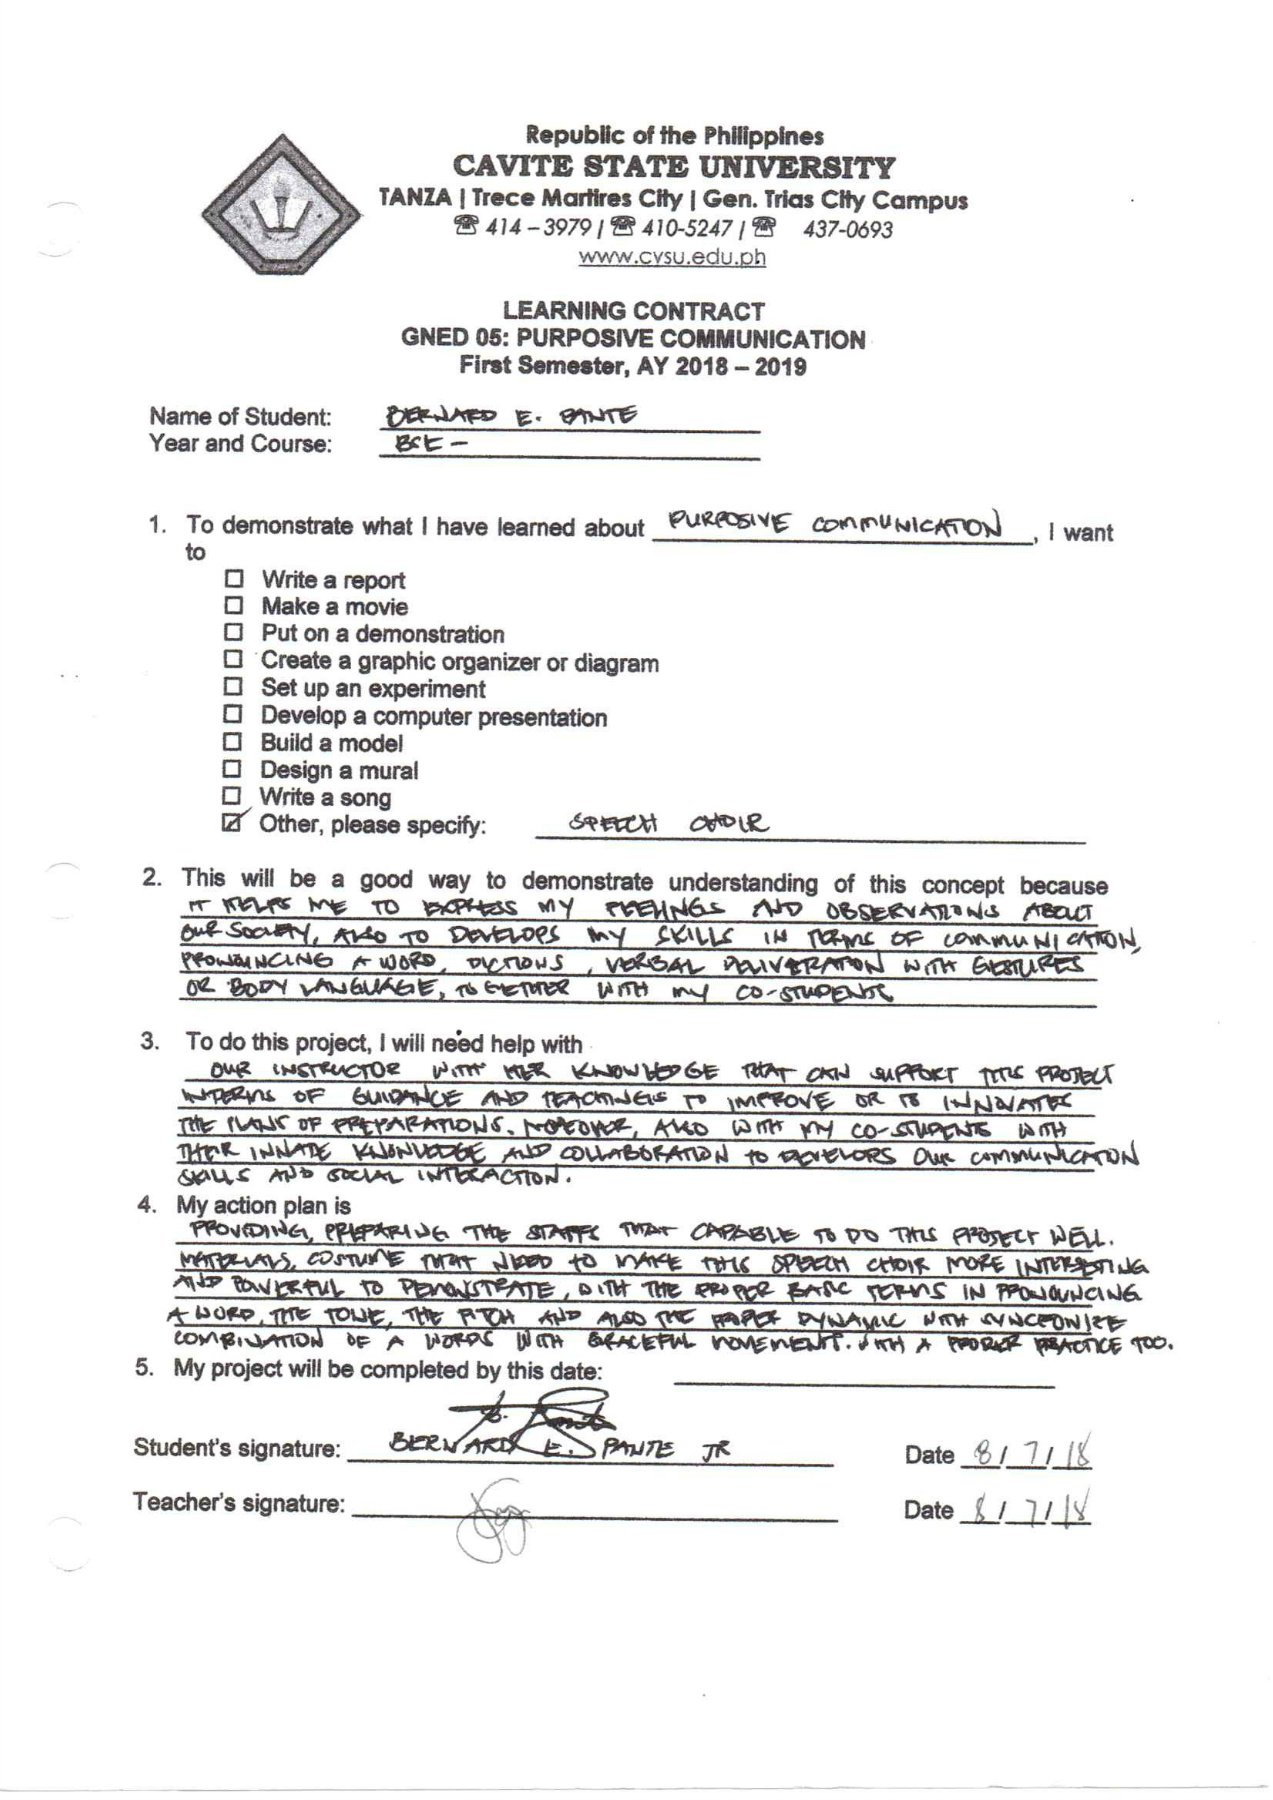 Republic of the Philippines
CAVITE STATE UNIVERSITY
TANZA | Trece Martires City | Gen. Trias City Campus
☎ 414 – 3979 / ☎ 410-5247 / ☎ 437-0693
www.cvsu.edu.ph
LEARNING CONTRACT
GNED 05: PURPOSIVE COMMUNICATION
First Semester, AY 2018 – 2019
Name of Student: BERNARD E. PANTE
Year and Course: BSE -
1. To demonstrate what I have learned about PURPOSIVE COMMUNICATION, I want
to
☐ Write a report
☐ Make a movie
☐ Put on a demonstration
☐ Create a graphic organizer or diagram
☐ Set up an experiment
☐ Develop a computer presentation
☐ Build a model
☐ Design a mural
☐ Write a song
☑ Other, please specify: SPEECH CHOIR
2. This will be a good way to demonstrate understanding of this concept because
IT HELPS ME TO EXPRESS MY FEELINGS AND OBSERVATIONS ABOUT
OUR SOCIETY, ALSO TO DEVELOPS MY SKILLS IN TERMS OF COMMUNICATION,
PRONOUNCING A WORD, DICTIONS, VERBAL DELIVERATION WITH GESTURES
OR BODY LANGUAGE, TOGETHER WITH MY CO-STUDENTS
3. To do this project, I will need help with
OUR INSTRUCTOR WITH HER KNOWLEDGE THAT CAN SUPPORT THIS PROJECT
INTERMS OF GUIDANCE AND TEACHINGS TO IMPROVE OR TO INNOVATES
THE PLANS OF PREPARATIONS. MOREOVER, ALSO WITH MY CO-STUDENTS WITH
THEIR INNATE KNOWLEDGE AND COLLABORATION TO DEVELOPS OUR COMMUNICATION
SKILLS AND SOCIAL INTERACTION.
4. My action plan is
PROVIDING, PREPARING THE STAFFS THAT CAPABLE TO DO THIS PROJECT WELL.
MATERIALS, COSTUME THAT NEED TO MAKE THIS SPEECH CHOIR MORE INTERESTING
AND POWERFUL TO DEMONSTRATE, WITH THE PROPER BASIC TERMS IN PRONOUNCING
A WORD, THE TONE, THE PITCH AND ALSO THE PROPER DYNAMIC WITH SYNCRONIZE
COMBINATION OF A WORDS WITH GRACEFUL MOVEMENT. WITH A PROPER PRACTICE TOO.
5. My project will be completed by this date:
Student's signature: BERNARD E. PANTE JR Date 8/7/18
Teacher's signature: Date 8/7/18